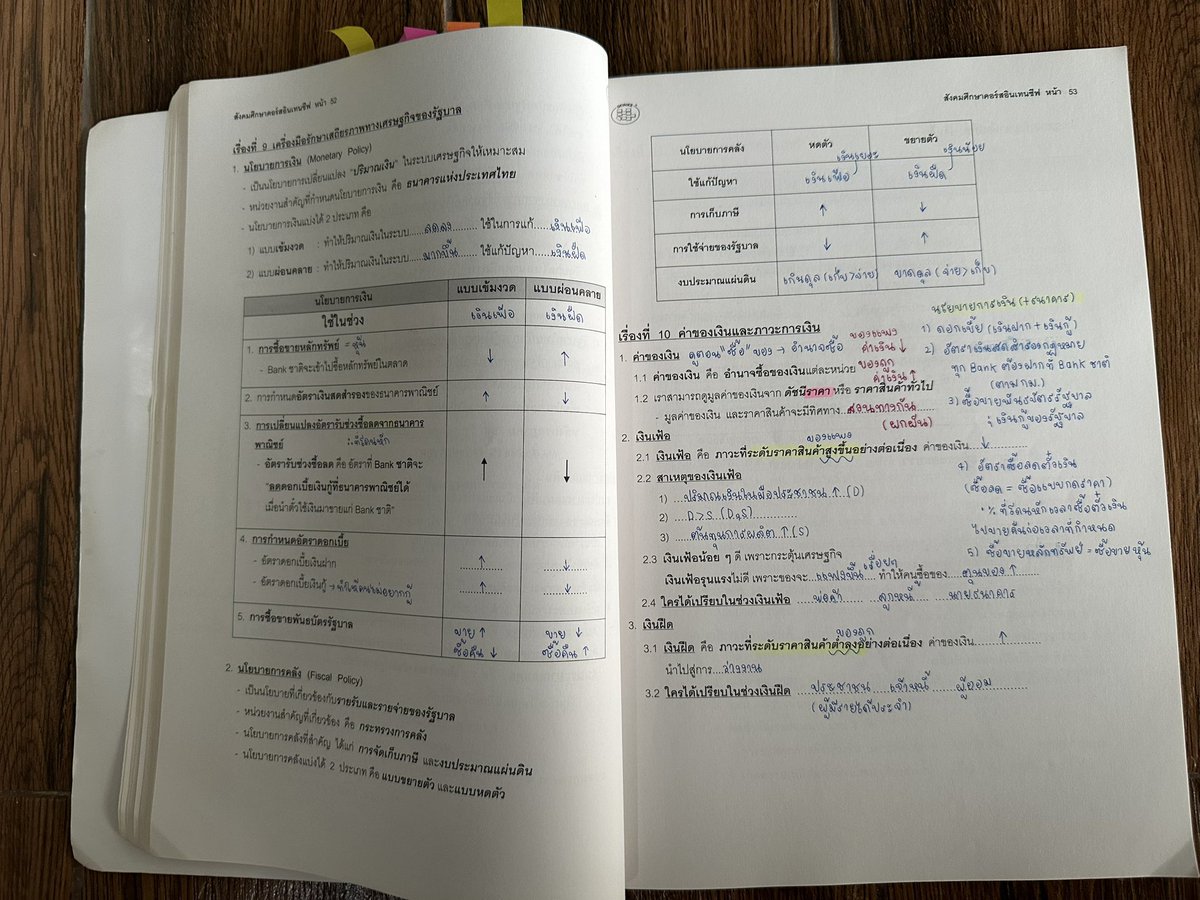 สังคมศึกษาคอร์สอินเทนซีฟ หน้า 52
เรื่องที่ 9 เครื่องมือรักษาเสถียรภาพทางเศรษฐกิจของรัฐบาล
1. นโยบายการเงิน (Monetary Policy)
- เป็นนโยบายการเปลี่ยนแปลง "ปริมาณเงิน" ในระบบเศรษฐกิจให้เหมาะสม
- หน่วยงานสำคัญที่กำหนดนโยบายการเงิน คือ ธนาคารแห่งประเทศไทย
- นโยบายการเงินแบ่งได้ 2 ประเภท คือ
1) แบบเข้มงวด : ทำให้ปริมาณเงินในระบบ.....ลดลง.......... ใช้ในการแก้....เงินเฟ้อ
2) แบบผ่อนคลาย : ทำให้ปริมาณเงินในระบบ.....มากขึ้น...... ใช้แก้ปัญหา.....เงินฝืด
นโยบายการเงิน แบบเข้มงวด แบบผ่อนคลาย
ใช้ในช่วง เงินเฟ้อ เงินฝืด
1. การซื้อขายหลักทรัพย์ = หุ้น ↓ ↑
- Bank ชาติจะเข้าไปซื้อหลักทรัพย์ในตลาด
2. การกำหนดอัตราเงินสดสำรองของธนาคารพาณิชย์ ↑ ↓
3. การเปลี่ยนแปลงอัตรารับช่วงซื้อลดจากธนาคาร
พาณิชย์ : % ที่โดนหัก
- อัตรารับช่วงซื้อลด คือ อัตราที่ Bank ชาติจะ ↑ ↓
"ลดดอกเบี้ยเงินกู้ที่ธนาคารพาณิชย์ได้
เมื่อนำตั๋วใช้เงินมาขายแก่ Bank ชาติ"
4. การกำหนดอัตราดอกเบี้ย
- อัตราดอกเบี้ยเงินฝาก ↑ ↓
- อัตราดอกเบี้ยเงินกู้ → ทำให้คนไม่อยากกู้ ↑ ↓
5. การซื้อขายพันธบัตรรัฐบาล ขาย ↑ ขาย ↓
ซื้อคืน ↓ ซื้อคืน ↑
2. นโยบายการคลัง (Fiscal Policy)
- เป็นนโยบายที่เกี่ยวข้องกับรายรับและรายจ่ายของรัฐบาล
- หน่วยงานสำคัญที่เกี่ยวข้อง คือ กระทรวงการคลัง
- นโยบายการคลังที่สำคัญ ได้แก่ การจัดเก็บภาษี และงบประมาณแผ่นดิน
- นโยบายการคลังแบ่งได้ 2 ประเภท คือ แบบขยายตัว และแบบหดตัว
สังคมศึกษาคอร์สอินเทนซีฟ หน้า 53
นโยบายการคลัง หดตัว ขยายตัว
เงินเยอะ เงินน้อย
ใช้แก้ปัญหา เงินเฟ้อ เงินฝืด
การเก็บภาษี ↑ ↓
การใช้จ่ายของรัฐบาล ↓ ↑
งบประมาณแผ่นดิน เกินดุล (เก็บ>จ่าย) ขาดดุล (จ่าย>เก็บ)
เรื่องที่ 10 ค่าของเงินและภาวะการเงิน
1. ค่าของเงิน ดูตอน "ซื้อ" ของ → อำนาจซื้อ
ของแพง
ค่าเงิน ↓
1.1 ค่าของเงิน คือ อำนาจซื้อของเงินแต่ละหน่วย
ของถูก
ค่าเงิน ↑
1.2 เราสามารถดูมูลค่าของเงินจาก ดัชนีราคา หรือ ราคาสินค้าทั่วไป
- มูลค่าของเงิน และราคาสินค้าจะมีทิศทาง....สวนทางกัน
(ผกผัน)
2. เงินเฟ้อ
ของแพง
2.1 เงินเฟ้อ คือ ภาวะที่ระดับราคาสินค้าสูงขึ้นอย่างต่อเนื่อง ค่าของเงิน....↓
2.2 สาเหตุของเงินเฟ้อ
1) ....ปริมาณเงินในมือประชาชน ↑ (D)
2) ....D>S
3) ....ต้นทุนการผลิต ↑ (S)
2.3 เงินเฟ้อน้อย ๆ ดี เพราะกระตุ้นเศรษฐกิจ
เงินเฟ้อรุนแรงไม่ดี เพราะของจะ....แพงขึ้นเรื่อยๆ ทำให้คนซื้อของ....ตุนของ ↑
2.4 ใครได้เปรียบในช่วงเงินเฟ้อ....พ่อค้า....ลูกหนี้....นายธนาคาร
3. เงินฝืด
ของถูก
3.1 เงินฝืด คือ ภาวะที่ระดับราคาสินค้าต่ำลงอย่างต่อเนื่อง ค่าของเงิน....↑
นำไปสู่การ....ว่างงาน
3.2 ใครได้เปรียบในช่วงเงินฝืด....ประชาชน....เจ้าหนี้....ผู้ออม
(ผู้มีรายได้ประจำ)
นโยบายการเงิน (+ธนาคาร)
1) ดอกเบี้ย (เงินฝาก + เงินกู้)
2) อัตราเงินสดสำรองกฎหมาย
ทุก Bank ต้องฝากที่ Bank ชาติ
(ตาม กม.)
3) ซื้อขายพันธบัตรรัฐบาล
: เงินกู้ของรัฐบาล
4) อัตราซื้อลดตั๋วเงิน
(ซื้อลด = ซื้อแบบกดราคา)
% ที่โดนหักเวลาซื้อตั๋วเงิน
ไปขายคืนก่อนเวลาที่กำหนด
5) ซื้อขายหลักทรัพย์ = ซื้อขายหุ้น